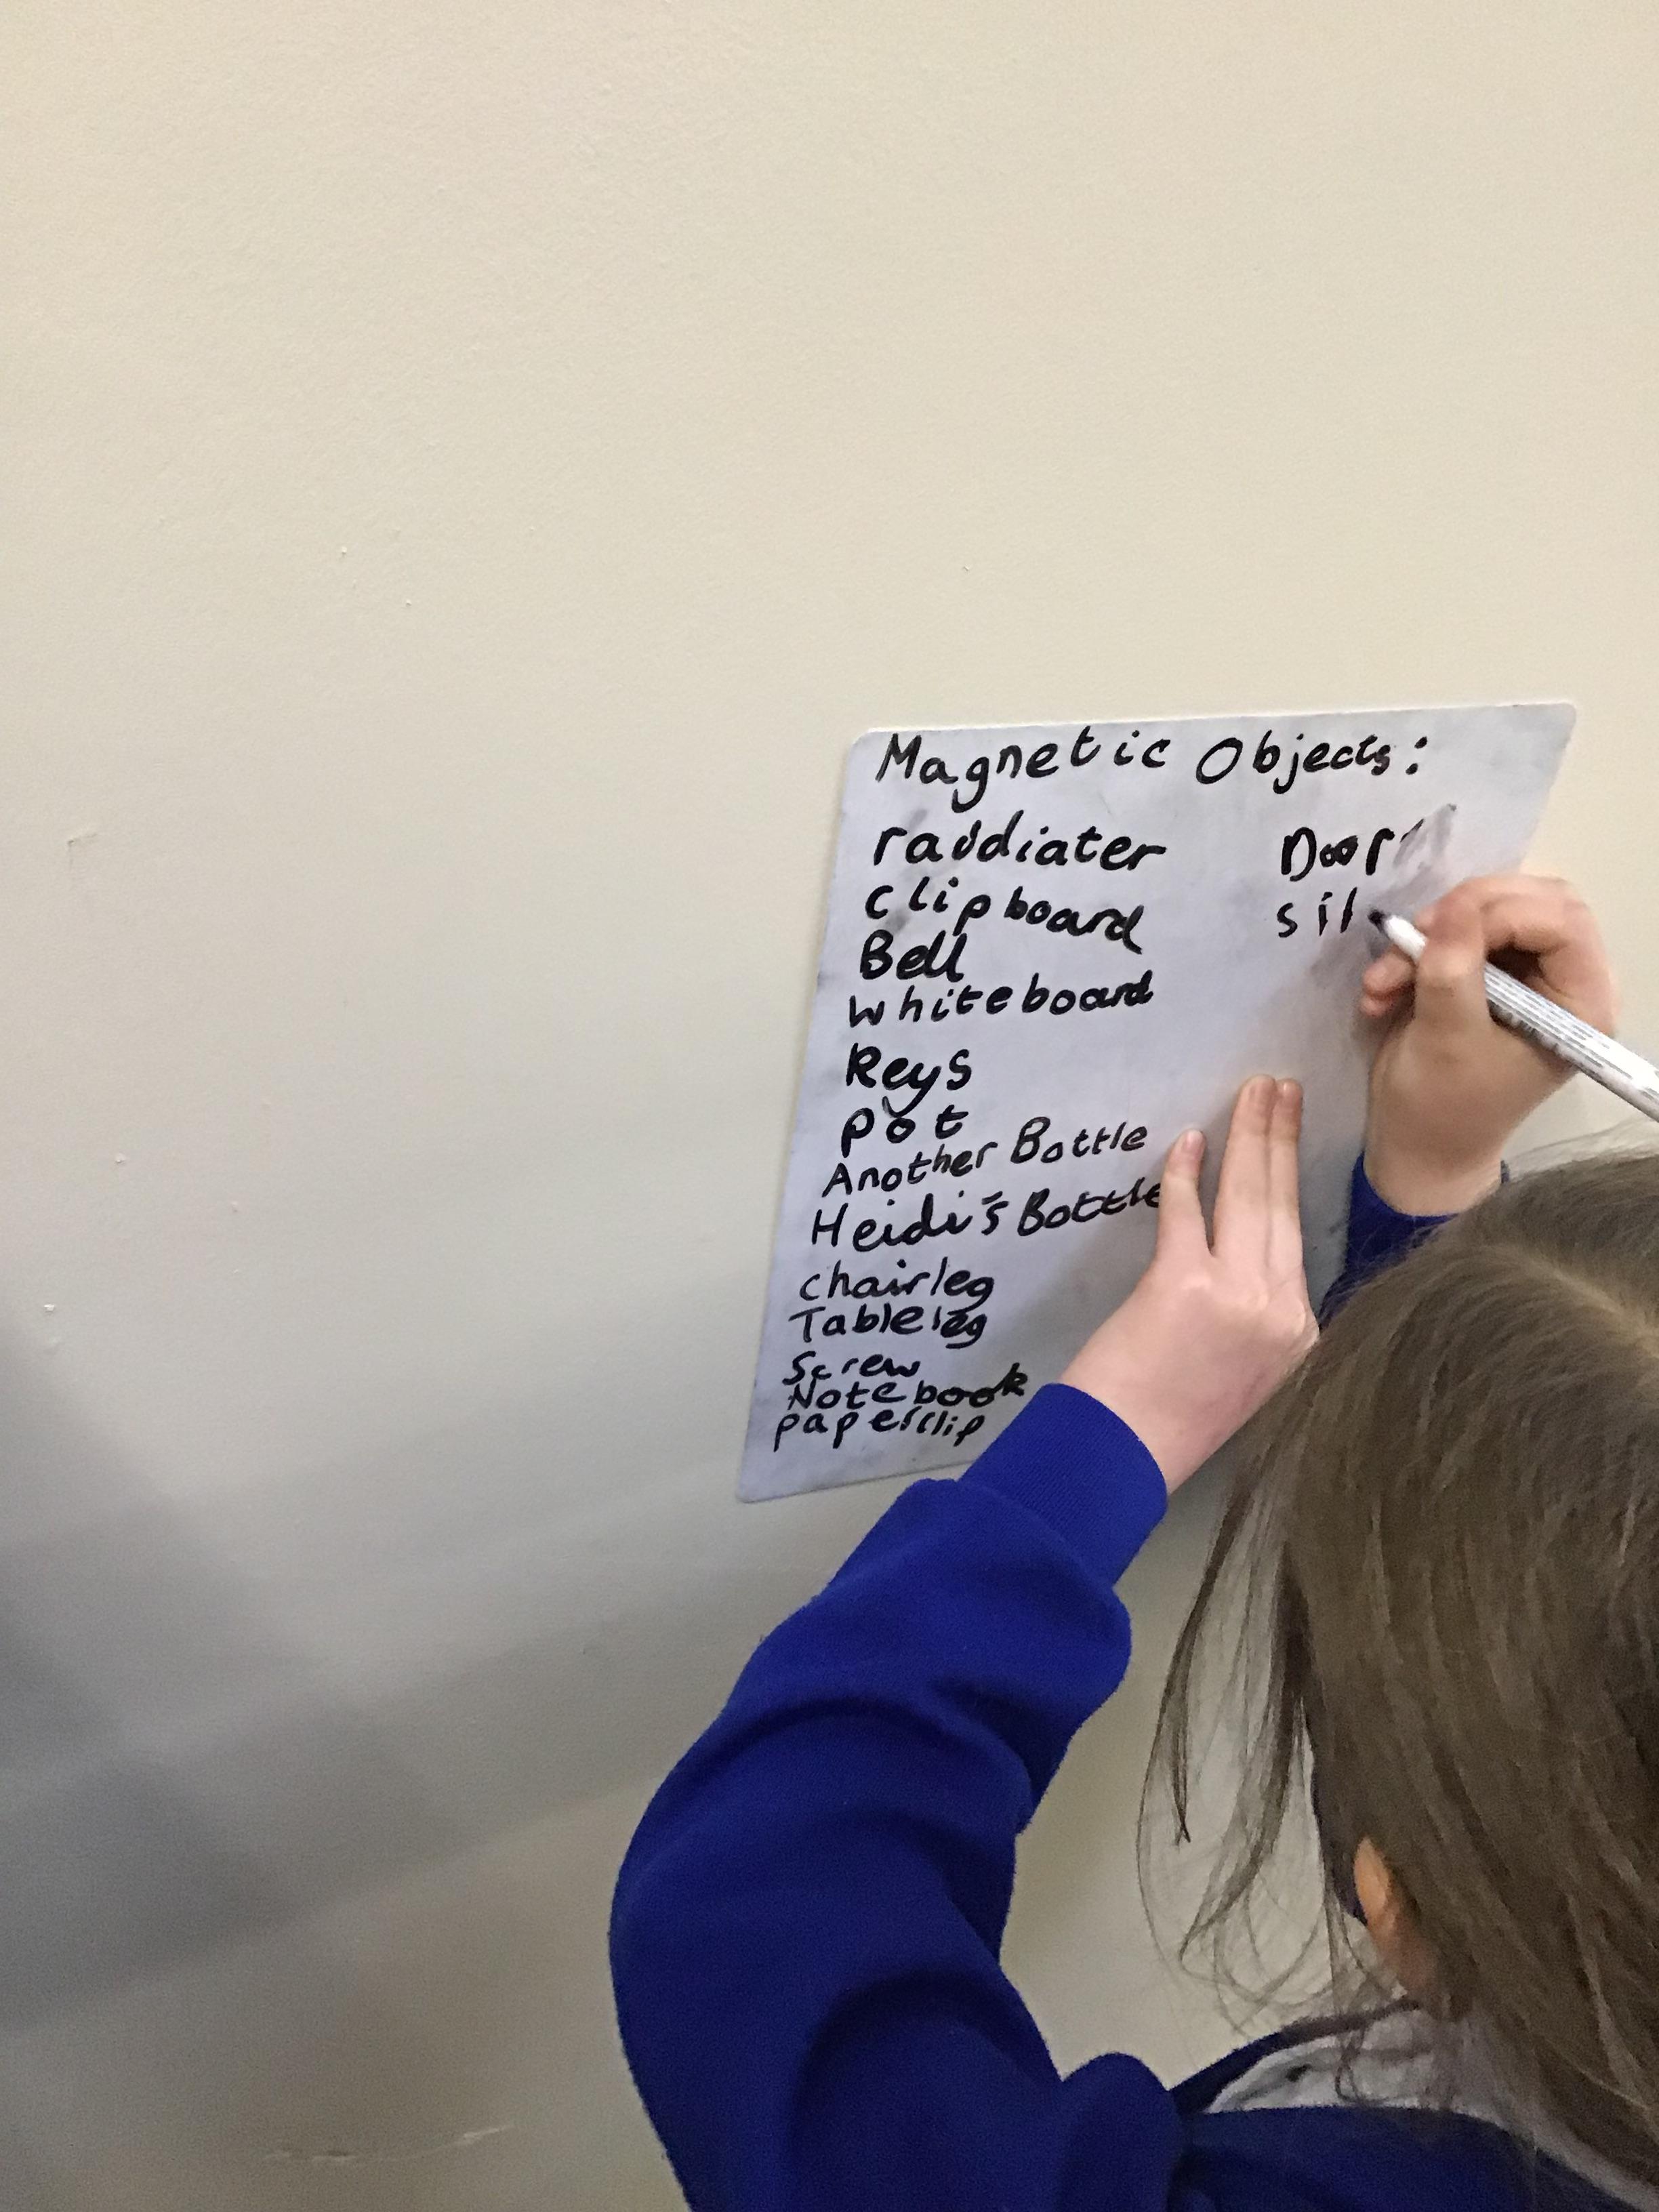 Magnetic Objects:
raddiater
clipboard
Bell
whiteboard
Keys
pot
Another Bottle
Heidi's Bottle
chairleg
Tableleg
Screw
Notebook
paperclip
Door
sil